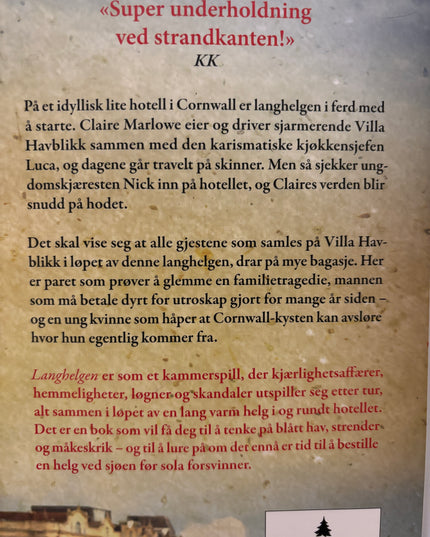 «Super underholdning
ved strandkanten!»
KK
På et idyllisk lite hotell i Cornwall er langhelgen i ferd med
å starte. Claire Marlowe eier og driver sjarmerende Villa
Havblikk sammen med den karismatiske kjøkkensjefen
Luca, og dagene går travelt på skinner. Men så sjekker ung-
domskjæresten Nick inn på hotellet, og Claires verden blir
snudd på hodet.
Det skal vise seg at alle gjestene som samles på Villa Hav-
blikk i løpet av denne langhelgen, drar på mye bagasje. Her
er paret som prøver å glemme en familietragedie, mannen
som må betale dyrt for utroskap gjort for mange år siden –
og en ung kvinne som håper at Cornwall-kysten kan avsløre
hvor hun egentlig kommer fra.
Langhelgen er som et kammerspill, der kjærlighetsaffærer,
hemmeligheter, løgner og skandaler utspiller seg etter tur,
alt sammen i løpet av en lang varm helg i og rundt hotellet.
Det er en bok som vil få deg til å tenke på blått hav, strender
og måkeskrik – og til å lure på om det ennå er tid til å bestille
en helg ved sjøen før sola forsvinner.